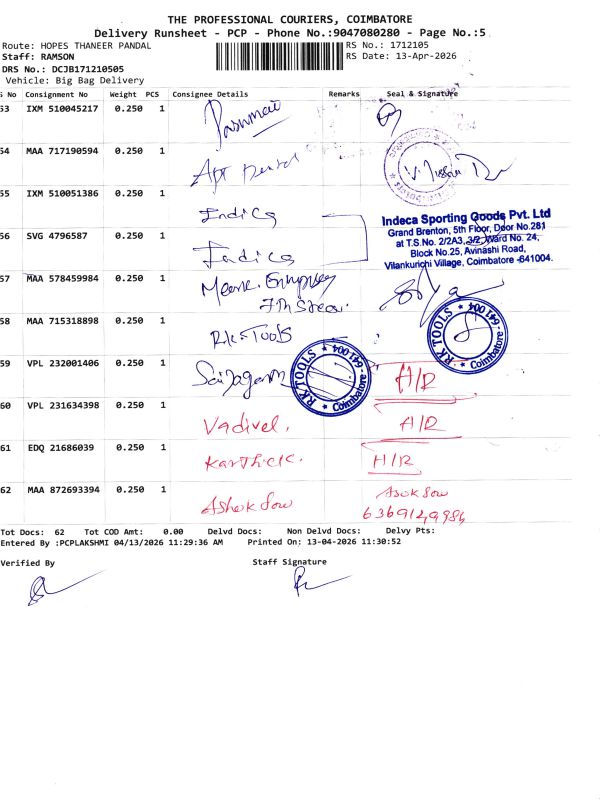 THE PROFESSIONAL COURIERS, COIMBATORE
Delivery Runsheet - PCP - Phone No.:9047080280 - Page No.:5
Route: HOPES THANEER PANDAL
RS No.: 1712105
Staff: RAMSON
RS Date: 13-Apr-2026
DRS No.: DCJB171210505
Vehicle: Big Bag Delivery
S No Consignment No Weight PCS Consignee Details Remarks Seal & Signature
53 IXM 510045217 0.250 1
54 MAA 717190594 0.250 1
55 IXM 510051386 0.250 1 Indica
Indeca Sporting Goods Pvt. Ltd
Grand Brenton, 5th Floor, Door No.281
at T.S.No. 2/2A3, 3/2, Ward No. 24,
Block No.25, Avinashi Road,
Vilankurichi Village, Coimbatore -641004.
56 SVG 4796587 0.250 1 Indica
57 MAA 578459984 0.250 1
58 MAA 715318898 0.250 1 RK Tools
RK TOOLS * 641 004 * Coimbatore
59 VPL 232001406 0.250 1 H/R
RK TOOLS * 641 004 * Coimbatore
60 VPL 231634398 0.250 1 Vadivel. H/R
61 EDQ 21686039 0.250 1 Karthick. H/R
62 MAA 872693394 0.250 1 Ashok Sow Asok Sow
6369129984
Tot Docs: 62 Tot COD Amt: 0.00 Delvd Docs: Non Delvd Docs: Delvy Pts:
Entered By :PCPLAKSHMI 04/13/2026 11:29:36 AM Printed On: 13-04-2026 11:30:52
Verified By Staff Signature